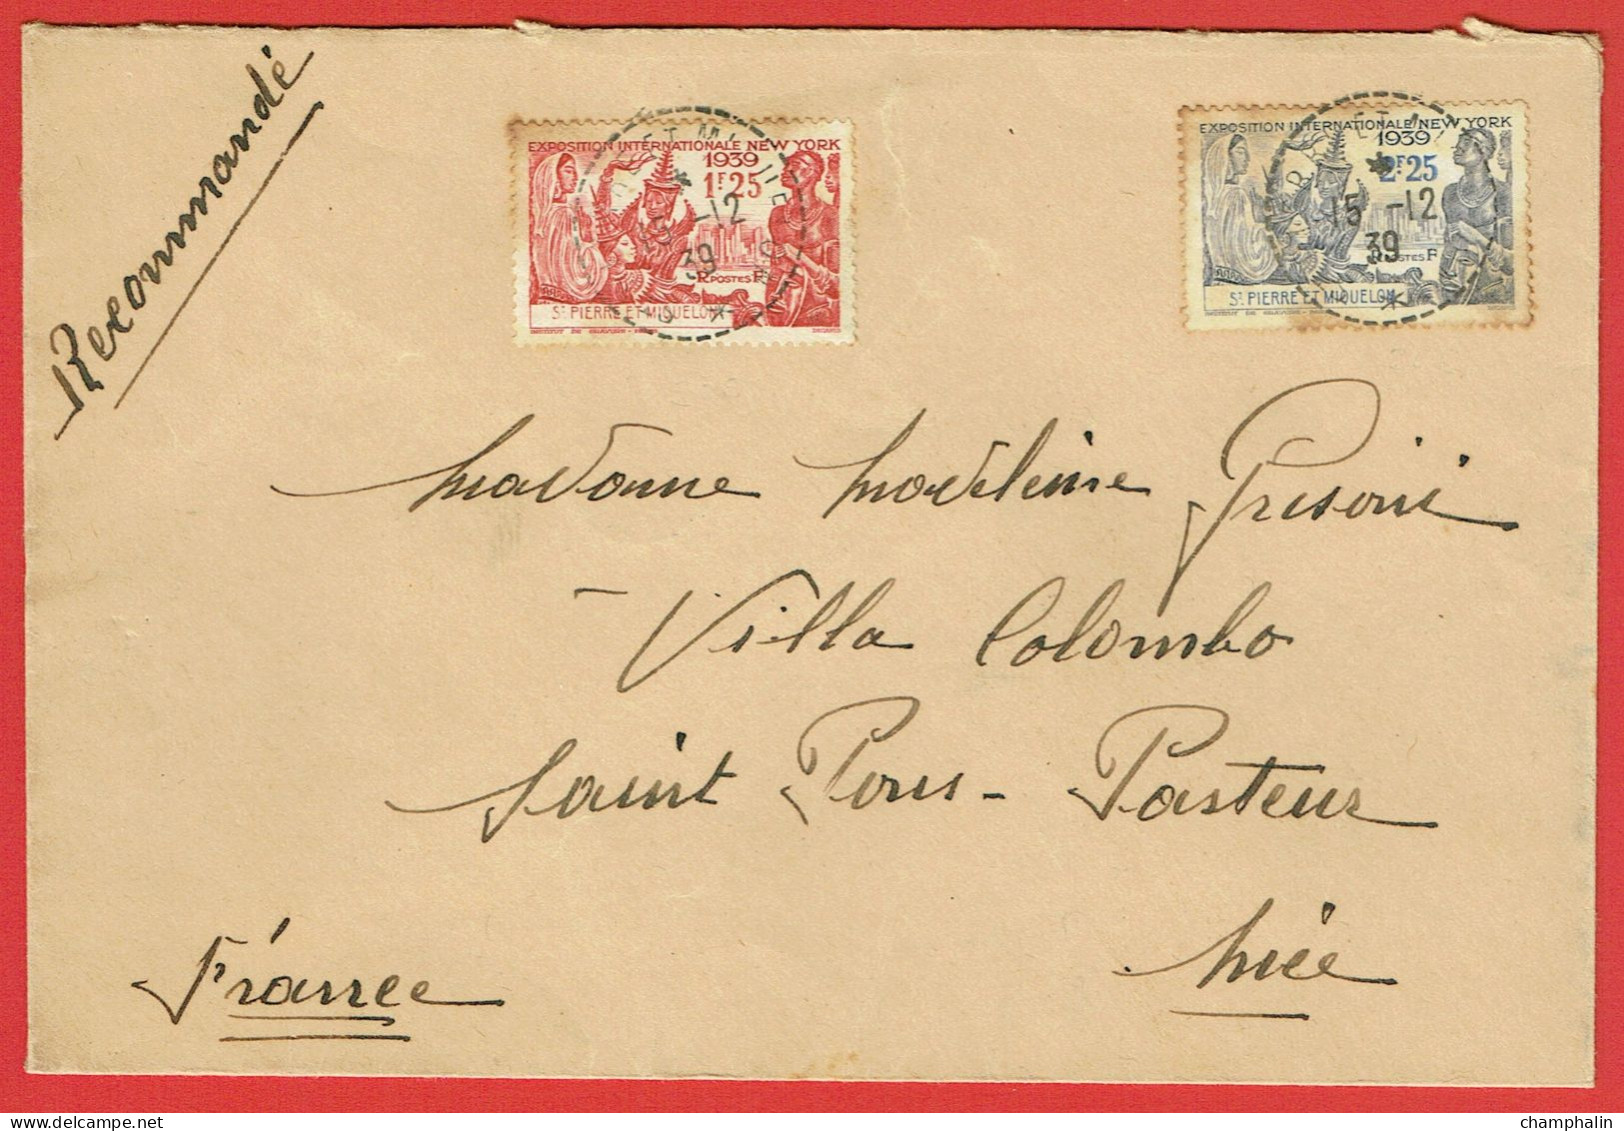 Recommandé
EXPOSITION INTERNATIONALE NEW YORK
1939
1F25
RF POSTES
ST PIERRE ET MIQUELON
15 -12
39
EXPOSITION INTERNATIONALE NEW YORK
1939
2F25
POSTES RF
ST PIERRE ET MIQUELON
15 -12
39
Madame Madeleine
Villa Colombo
Saint Pons - Pasteur
Nice
France
champhalin